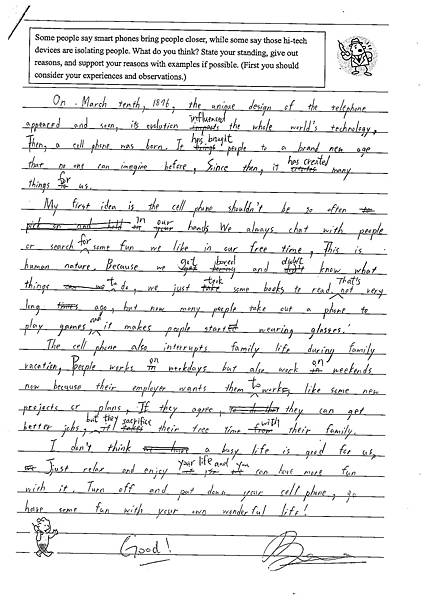 Some people say smart phones bring people closer, while some say those hi-tech
devices are isolating people. What do you think? State your standing, give out
reasons, and support your reasons with examples if possible. (First you should
consider your experiences and observations.)
On March tenth, 1876, the unique design of the telephone
influenced
appeared and soon, its evolution impacts the whole world's technology,
has brought
Then, a cell phone was born. It brings people to a brand new age
has created
that no one can imagine before, Since then, it many
for
things to us.
My first idea is the cell phone shouldn't be so often to
in our
pick up and hold hands We always chat with people
for
or search some fun we like in our free time, This is
got bored didn't
human nature. Because we and know what
to took That's
things do, we just take some books to read. not very
long ago, but now many people take out a phone to
and
play games, it makes people started wearing glasses.
The cell phone also interrupts family life during family
on on
vacation, People works weekdays but also work weekends
to
now because their employer wants them work, like some new
projects or plans, If they agree, they can get
but they sacrifice with
better jobs, their free time their family.
I don't think a busy life is good for us,
your life and you
Just relax and enjoy can love more fun
with it. Turn off and put down your cell phone, go
have some fun with your own wonderful life!
Good!